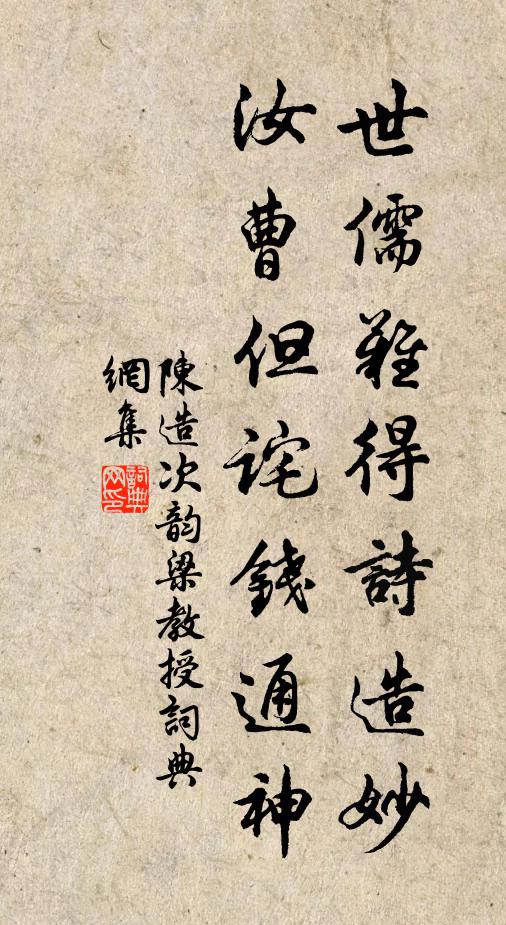 世儒難得詩造妙
汝曹但詫錢通神
陳造次韵梁教授詞典
網集
詞典網印